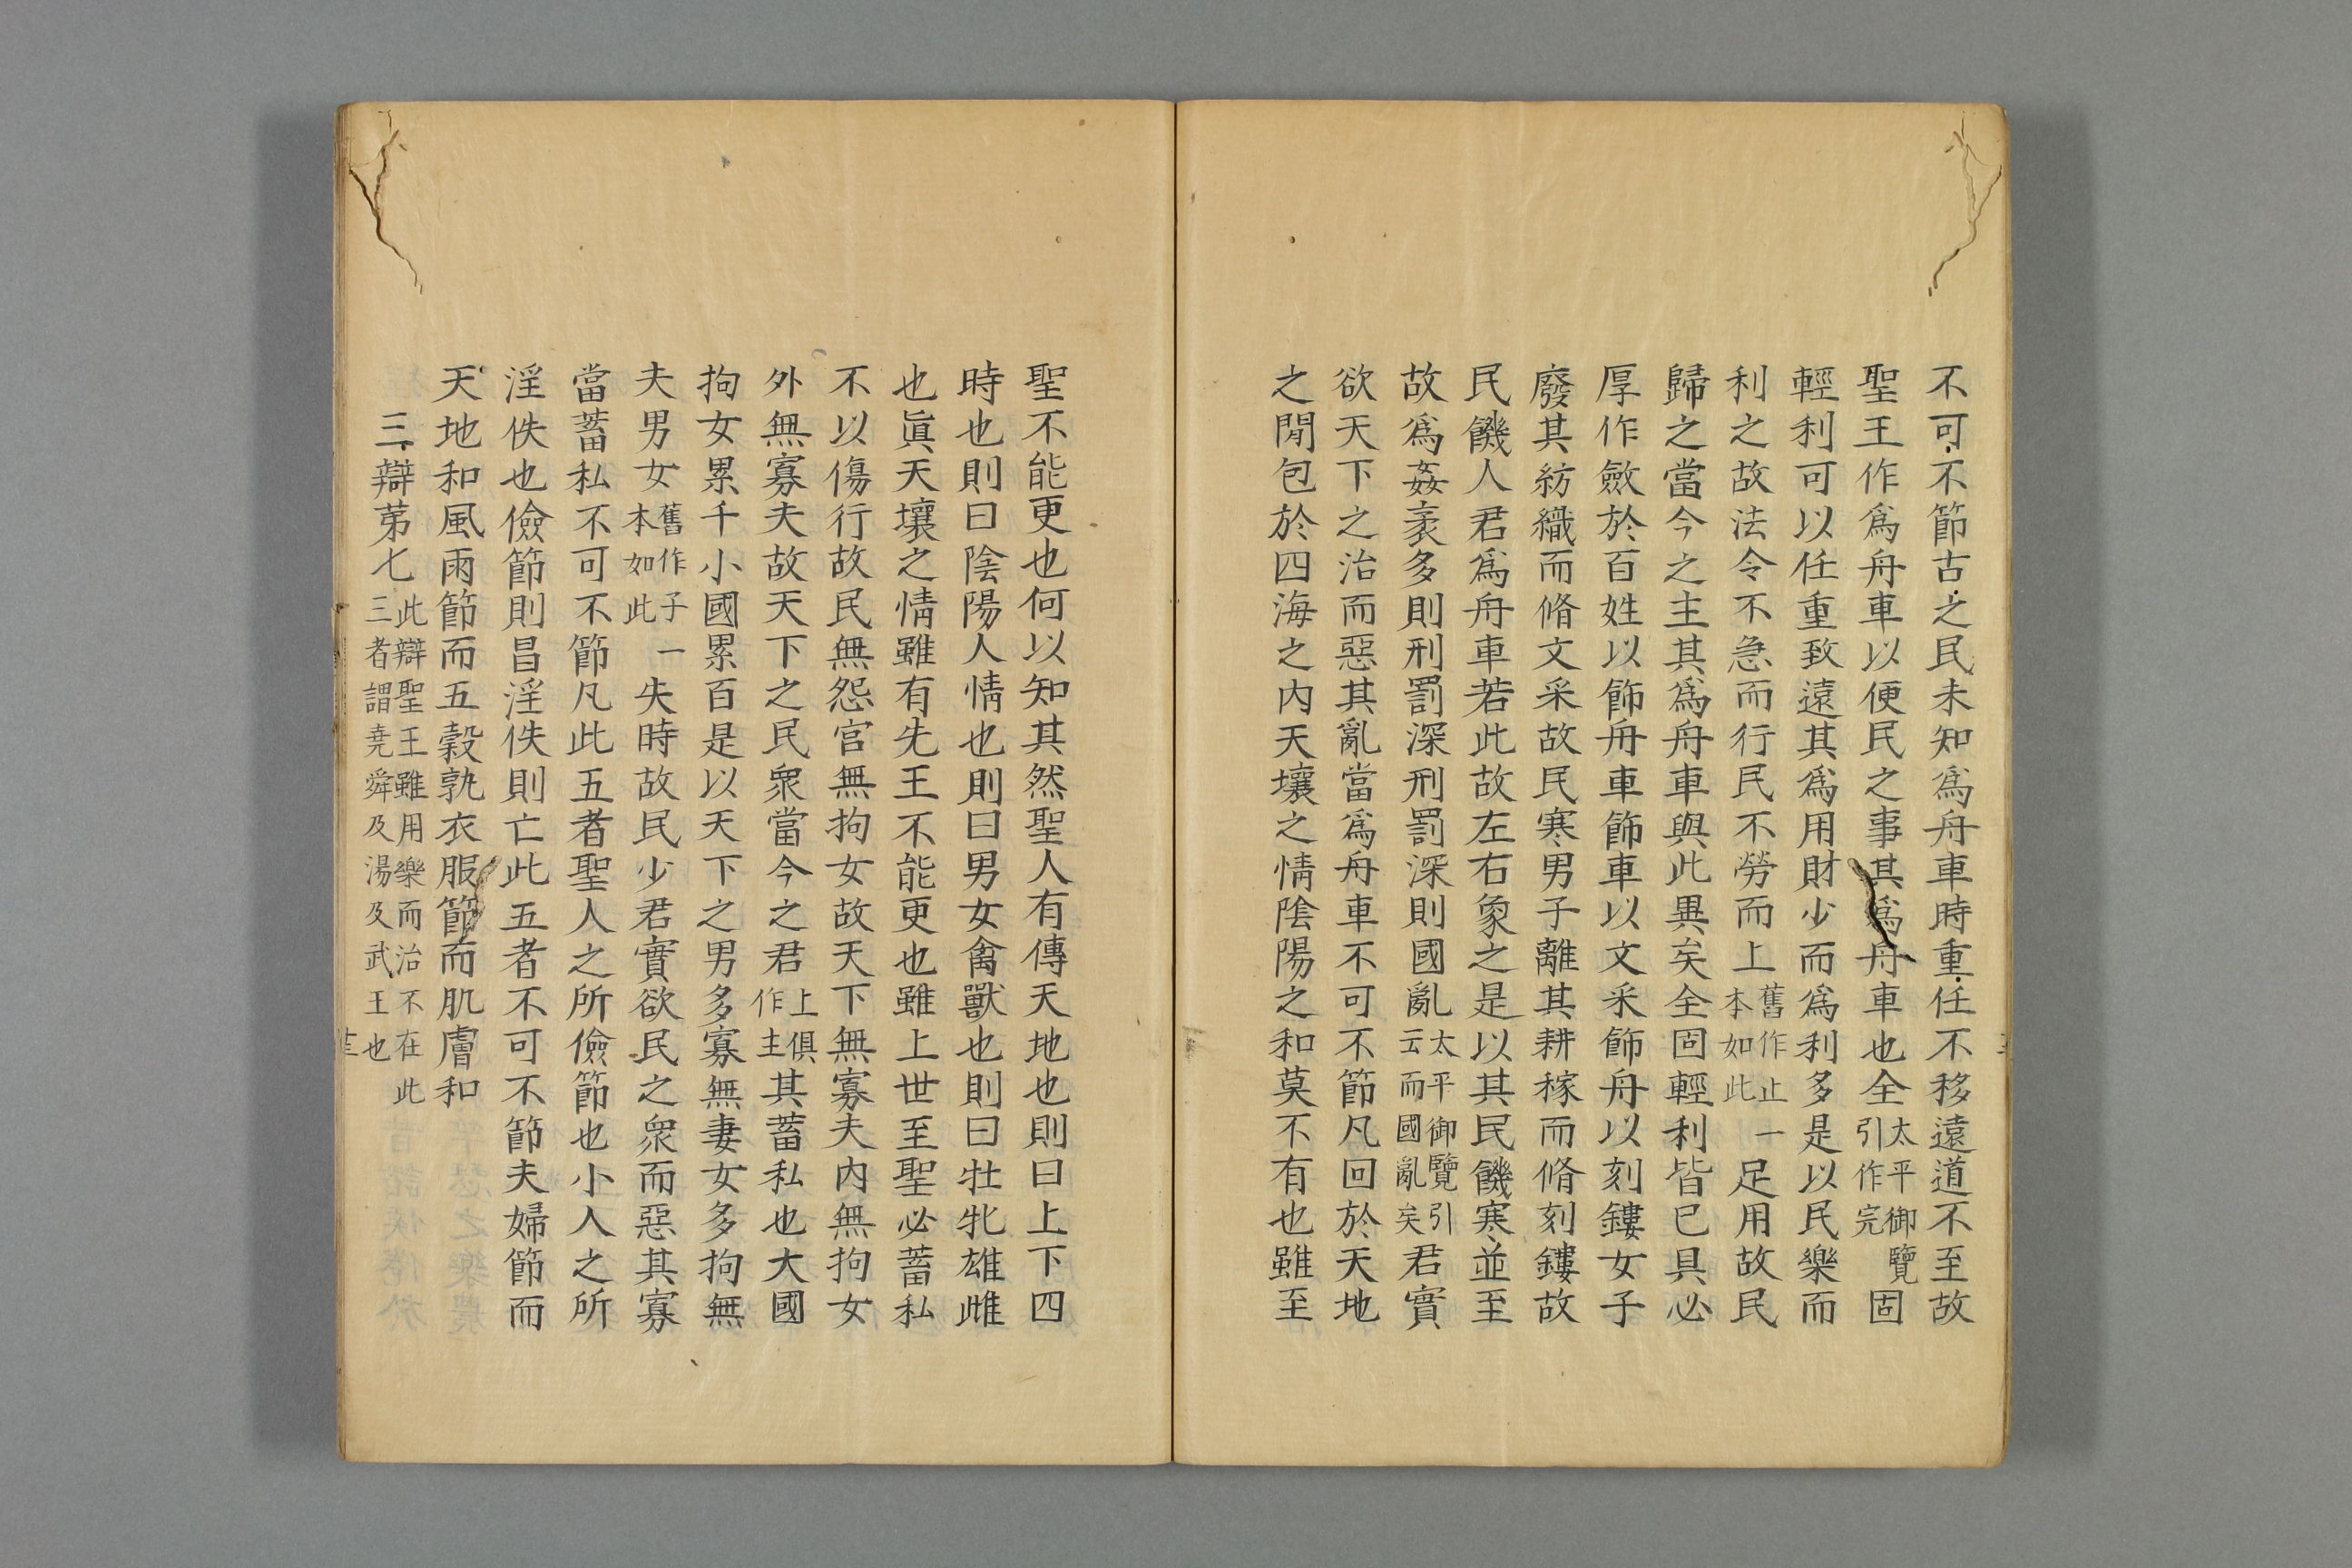 不可不節古之民未知爲舟車時重任不移遠道不至故
聖王作爲舟車以便民之事其爲舟車也全太平御覽引作完固
輕利可以任重致遠其爲用財少而爲利多是以民樂而
利之故法令不急而行民不勞而上舊作止一本如此足用故民
歸之當今之主其爲舟車與此異矣全固輕利皆已具必
厚作斂於百姓以飾舟車飾車以文采飾舟以刻鏤女子
廢其紡織而脩文采故民寒男子離其耕稼而脩刻鏤故
民饑人君爲舟車若此故左右象之是以其民饑寒並至
故爲姦衺多則刑罰深刑罰深則國亂太平御覽引云而國亂矣君實
欲天下之治而惡其亂當爲舟車不可不節凡回於天地
之閒包於四海之內天壤之情陰陽之和莫不有也雖至
聖不能更也何以知其然聖人有傳天地也則曰上下四
時也則曰陰陽人情也則曰男女禽獸也則曰牡牝雄雌
也眞天壤之情雖有先王不能更也雖上世至聖必蓄私
不以傷行故民無怨宮無拘女故天下無寡夫內無拘女
外無寡夫故天下之民衆當今之君上俱作主其蓄私也大國
拘女累千小國累百是以天下之男多寡無妻女多拘無
夫男女舊作子一本如此失時故民少君實欲民之衆而惡其寡
當蓄私不可不節凡此五者聖人之所儉節也小人之所
淫佚也儉節則昌淫佚則亡此五者不可不節夫婦節而
天地和風雨節而五穀孰衣服節而肌膚和
三辯苐七此辯聖王雖用樂而治不在此三者謂堯舜及湯及武王也